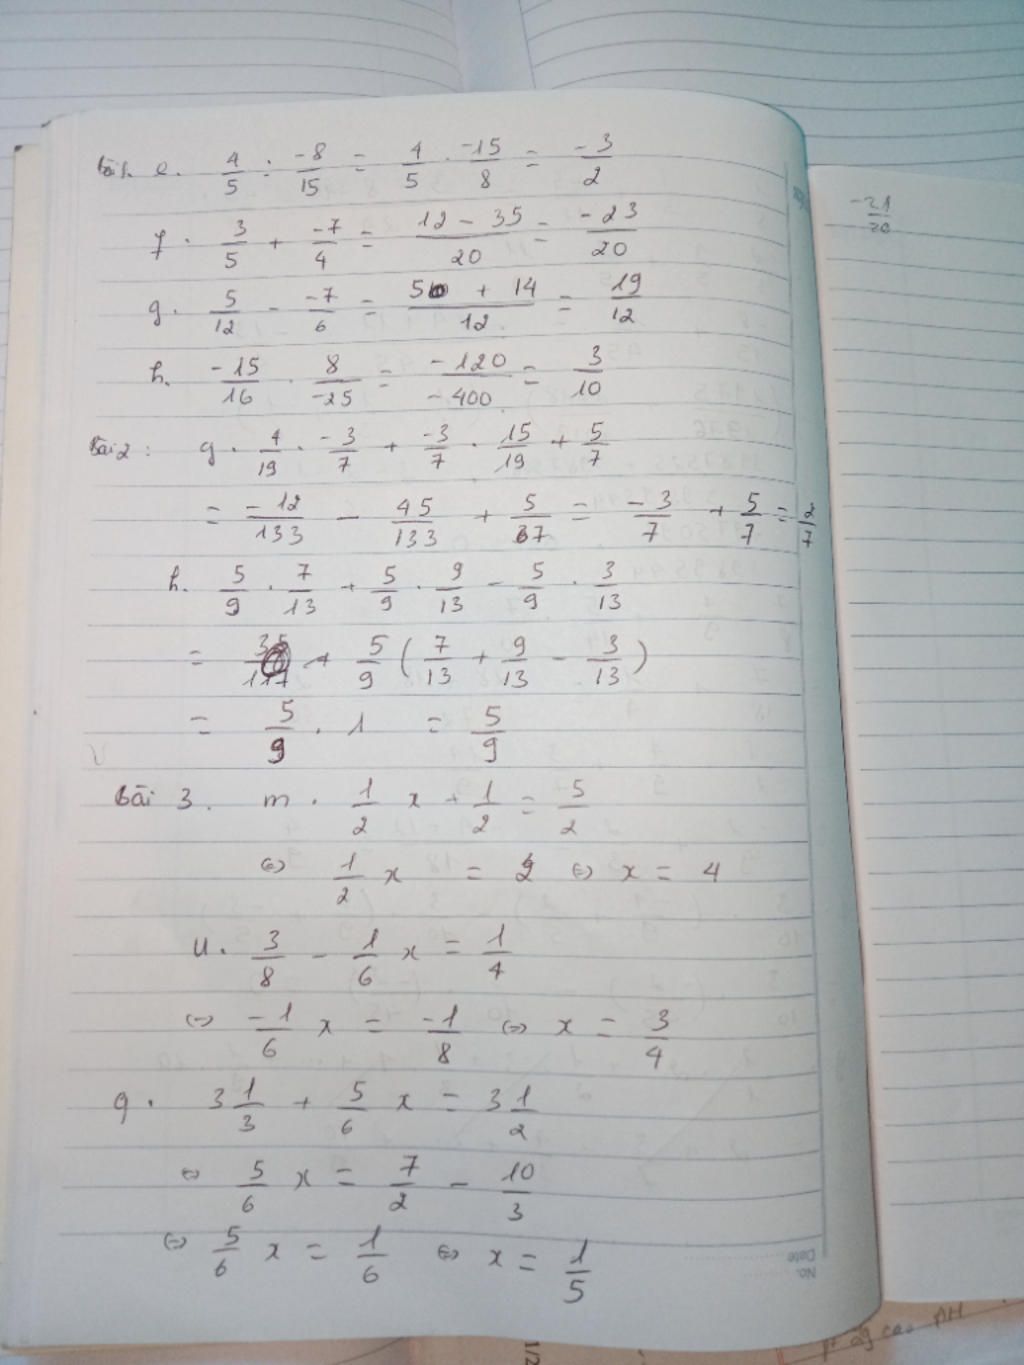 Bài 1. e. 4/5 : -8/15 = 4/5 . -15/8 = -3/2
f. 3/5 + -7/4 = 12 - 35/20 = -23/20
g. 5/12 - -7/6 = 5 + 14/12 = 19/12
h. -15/16 . 8/-25 = -120/-400 = 3/10
Bài 2 : g. 4/19 . -3/7 + -3/7 . 15/19 + 5/7
= -12/133 - 45/133 + 5/7 = -3/7 + 5/7 = 2/7
h. 5/9 . 7/13 + 5/9 . 9/13 - 5/9 . 3/13
= 5/9 ( 7/13 + 9/13 - 3/13 )
= 5/9 . 1 = 5/9
Bài 3. m. 1/2 x + 1/2 = 5/2
⇔ 1/2 x = 2 ⇔ x = 4
u. 3/8 - 1/6 x = 1/4
⇔ -1/6 x = -1/8 ⇔ x = 3/4
q. 3 1/3 + 5/6 x = 3 1/2
⇔ 5/6 x = 7/2 - 10/3
⇔ 5/6 x = 1/6 ⇔ x = 1/5
-21/20
No.
Date